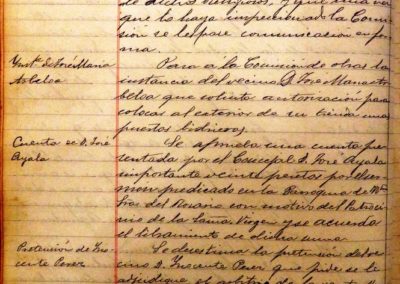 de dichos
que lo haya impreso a la Comi-
sión se le pase comunicación en for-
ma.
Inst.ª de José Maria
Arbeloa
Pasa a la Comisión de obras la
instancia del vecino D. José Maria Ar-
beloa que solicita autorización para
colocar al exterior de su tienda unas
puertas vidrieras.
Cuenta de D. José
Ayala
Se aprueba una cuenta pre-
sentada por el Concejal D. José Ayala
importante veinte pesetas por el ser-
mon predicado en la Parroquia de Ntra
Sra. del Rosario con motivo del Patroci-
nio de la Sma. Virgen y se acuerda
el libramiento de dicha suma.
Pretensión de Ino-
cente Perez
Se desestima la pretensión del ve-
cino D. Inocente Perez que pide se le
adjudique el arbitrio de